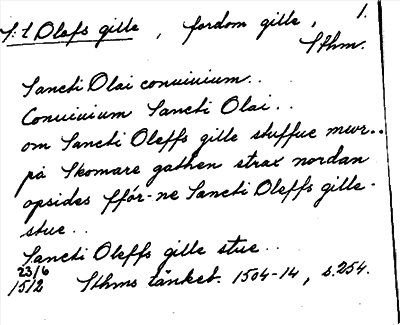 S:t Olofs gille, fordom gille, 1.
Sthm.
Sancti Olai conuiuium..
Conuiuium Sancti Olai..
om Sancti Oleffs gille stuffue mwr..
på Skomare gathen strax nordan
opsides ffór-ne Sancti Oleffs gille-
stue..
Sancti Oleffs gille stue..
23/6
1512 Sthms tänkeb. 1504-14, s.254.